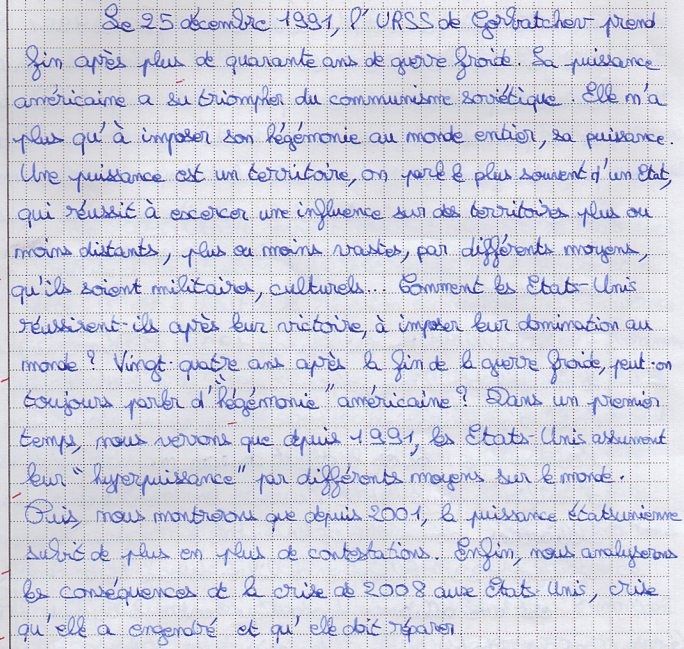 Le 25 décembre 1991, l'URSS de Gorbatchev prend
fin après plus de quarante ans de guerre froide. La puissance
américaine a su triompher du communisme soviétique. Elle n'a
plus qu'à imposer son hégémonie au monde entier, sa puissance.
Une puissance est un territoire, on parle le plus souvent d'un Etat,
qui réussit à excercer une influence sur des territoires plus ou
moins distants, plus ou moins vastes, par différents moyens,
qu'ils soient militaires, culturels... Comment les Etats-Unis
réussirent-ils après leur victoire, à imposer leur domination au
monde ? Vingt-quatre ans après la fin de la guerre froide, peut-on
toujours parler d'"hégémonie" américaine ? Dans un premier
temps, nous verrons que depuis 1991, les Etats-Unis assument
leur "hyperpuissance" par différents moyens sur le monde.
Puis, nous montrerons que depuis 2001, la puissance étatsunienne
subit de plus en plus de contestations. Enfin, nous analyserons
les conséquences de la crise de 2008 aux Etats-Unis, crise
qu'elle a engendré et qu'elle doit réparer